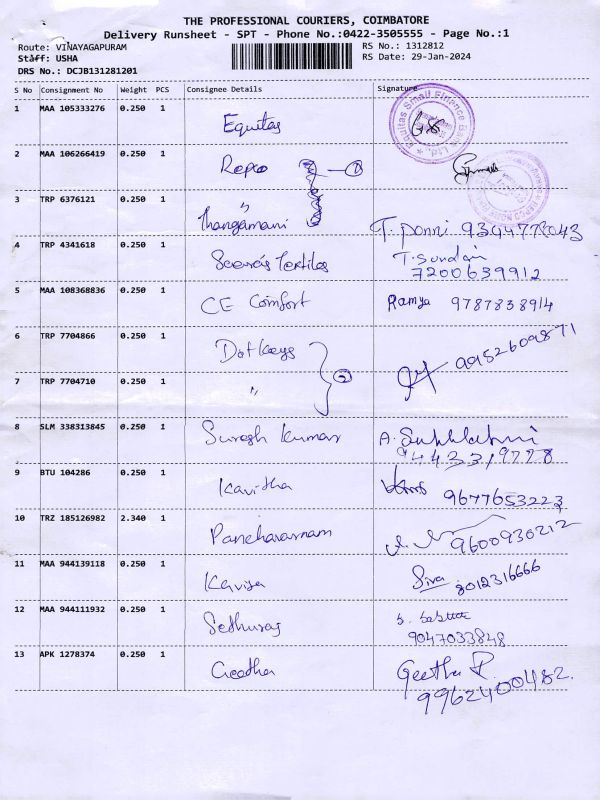 THE PROFESSIONAL COURIERS, COIMBATORE
Delivery Runsheet - SPT - Phone No.:0422-3505555 - Page No.:1
Route: VINAYAGAPURAM
RS No.: 1312812
Staff: USHA
RS Date: 29-Jan-2024
DRS No.: DCJB131281201
S No Consignment No Weight PCS Consignee Details Signature
1 MAA 105333276 0.250 1 Equitas
Equitas Small Finance Bank Ltd.
2 MAA 106266419 0.250 1 Repco
3 TRP 6376121 0.250 1 Thangamani T. Ponni
4 TRP 4341618 0.250 1 Textiles T. Sundari
7200639912
5 MAA 108368836 0.250 1 CE Comfort Ramya 9787838914
6 TRP 7704866 0.250 1 Dot Keys 9952609871
7 TRP 7704710 0.250 1 " 2
8 SLM 338313845 0.250 1 Suresh Kumar A.
9 BTU 104286 0.250 1 Kavitha 9677653223
10 TRZ 185126982 2.340 1 9600930212
11 MAA 944139118 0.250 1 Kaviya Siva 8012316666
12 MAA 944111932 0.250 1 Sethuraj
9047033848
13 APK 1278374 0.250 1 Geetha Geetha P.
9962400482.